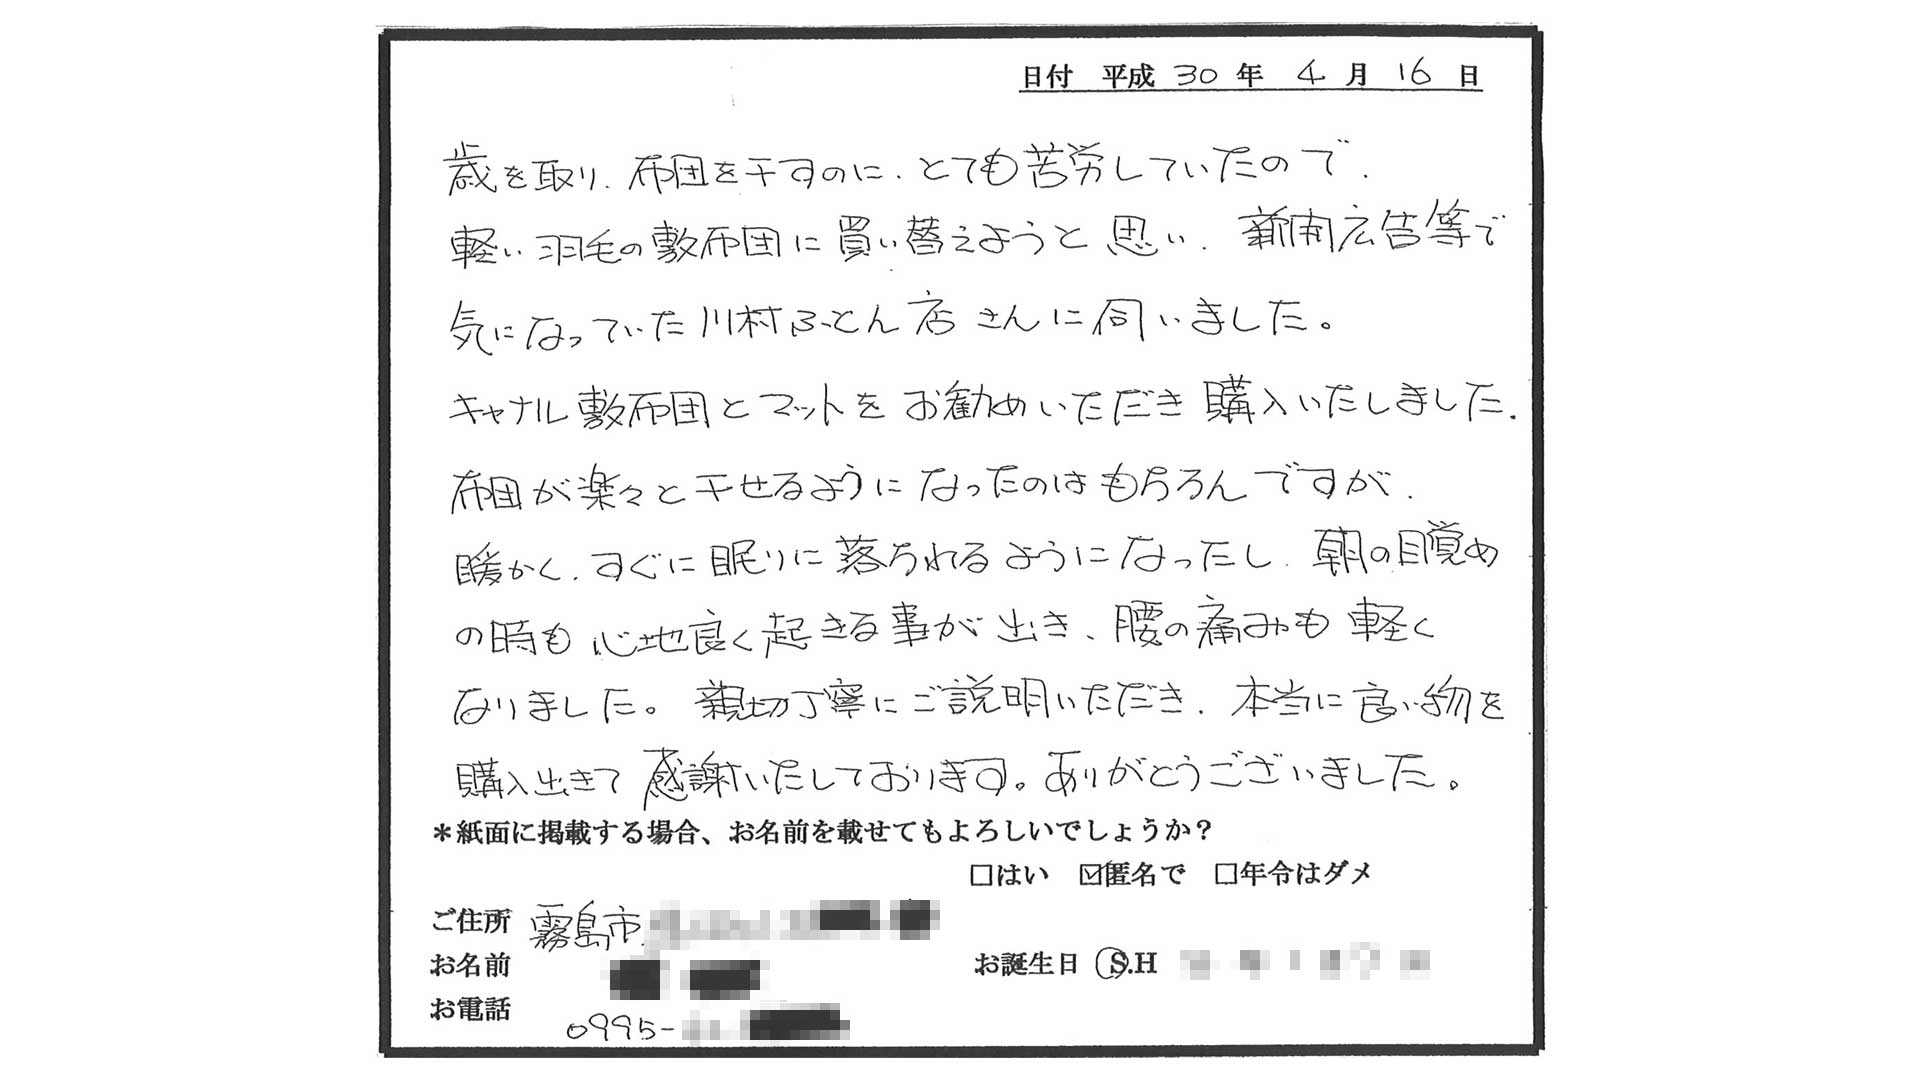 日付 平成 30 年 4 月 16 日
歳を取り、布団を干すのに、とても苦労していたので、
軽い羽毛の敷布団に買い替えようと思い、新聞広告等で
気になっていた川村ふとん店さんに伺いました。
キャナル敷布団とマットをお勧めいただき購入いたしました。
布団が楽々と干せるようになったのはもちろんですが、
暖かく、すぐに眠りに落ちれるようになったし、朝の目覚め
の時も心地良く起きる事が出き、腰の痛みも軽く
なりました。親切丁寧にご説明いただき、本当に良い物を
購入出きて感謝いたしております。ありがとうございました。
＊紙面に掲載する場合、お名前を載せてもよろしいでしょうか？
□はい ☑匿名で □年令はダメ
ご住所 霧島市
お名前
お誕生日 S.H
お電話 0995-